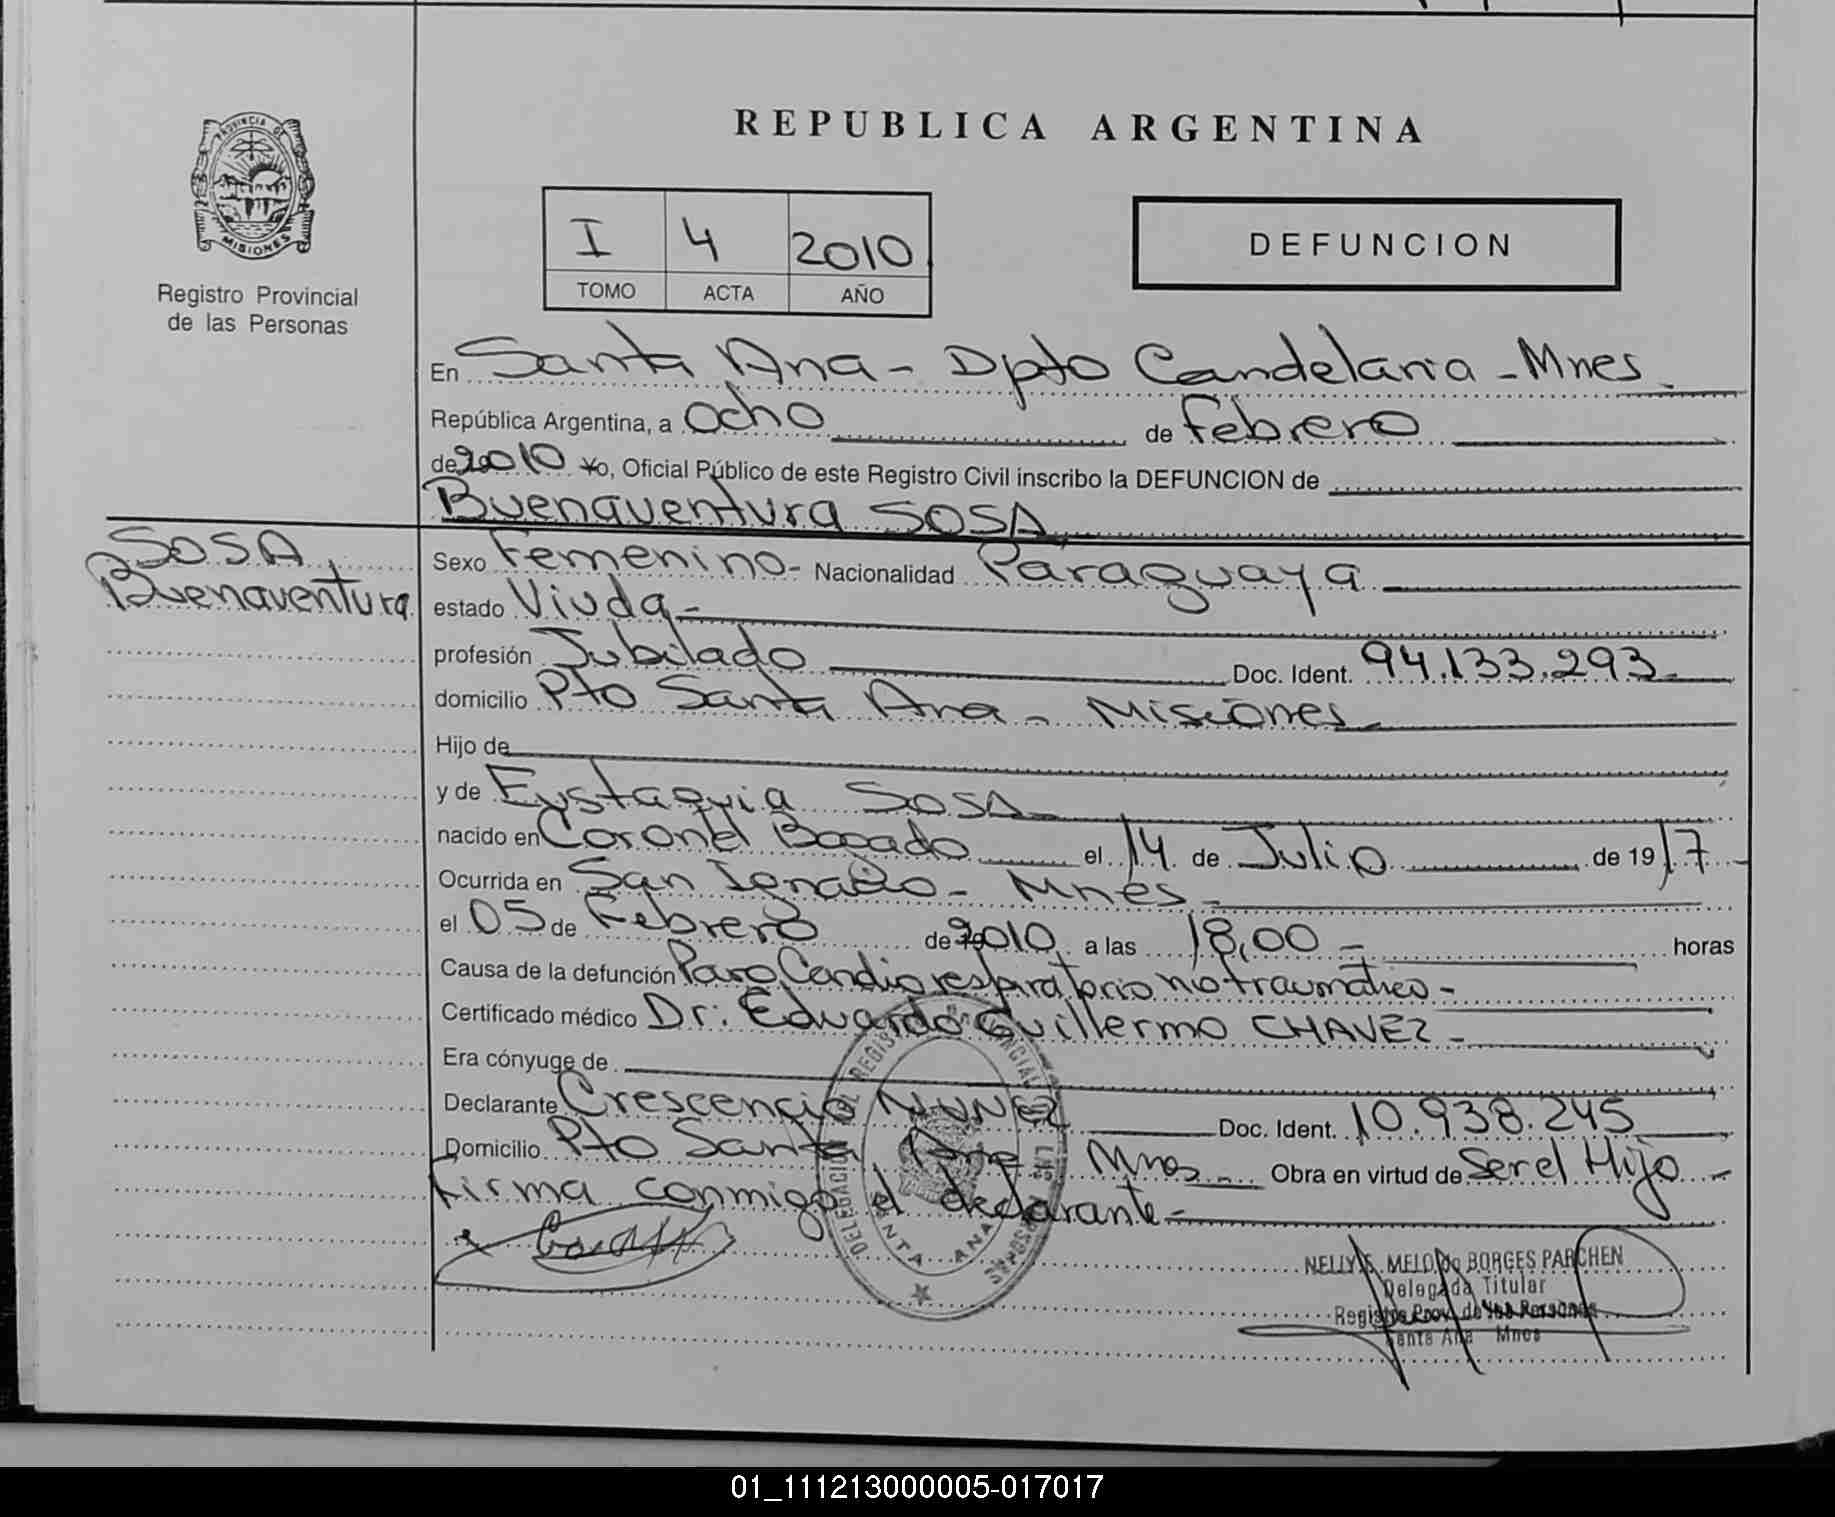 PROVINCIA DE
MISIONES
Registro Provincial
de las Personas
REPUBLICA ARGENTINA
I 4 2010
TOMO ACTA AÑO
DEFUNCION
En Santa Ana - Dpto Candelaria - Mnes.
República Argentina, a Ocho de Febrero
de 2010 Yo, Oficial Público de este Registro Civil inscribo la DEFUNCION de
Buenaventura SOSA
SOSA
Buenaventura
Sexo Femenino - Nacionalidad Paraguaya
estado Viuda -
profesión Jubilado Doc. Ident. 94.133.293
domicilio Pto Santa Ana - Misiones
Hijo de
y de Eustaquia SOSA
nacido en Coronel Bogado el 14 de Julio de 19 17
Ocurrida en San Ignacio - Mnes -
el 05 de Febrero de 2010 a las 18,00 - horas
Causa de la defunción Paro Cardio respiratorio no traumático -
Certificado médico Dr: Eduardo Guillermo CHAVEZ -
Era cónyuge de
Declarante Crescencio NUNEZ Doc. Ident. 10.938.245
Domicilio Pto Santa Ana Mnes Obra en virtud de Ser el Hijo -
Firma conmigo el declarante -
DELEGACION REGISTRO PROVINCIAL LAS PERSONAS
SANTA ANA
NELLY S. MELO de BORGES PARCHEN
Delegada Titular
Registro Prov. de las Personas
Santa Ana Mnes
01_111213000005-017017